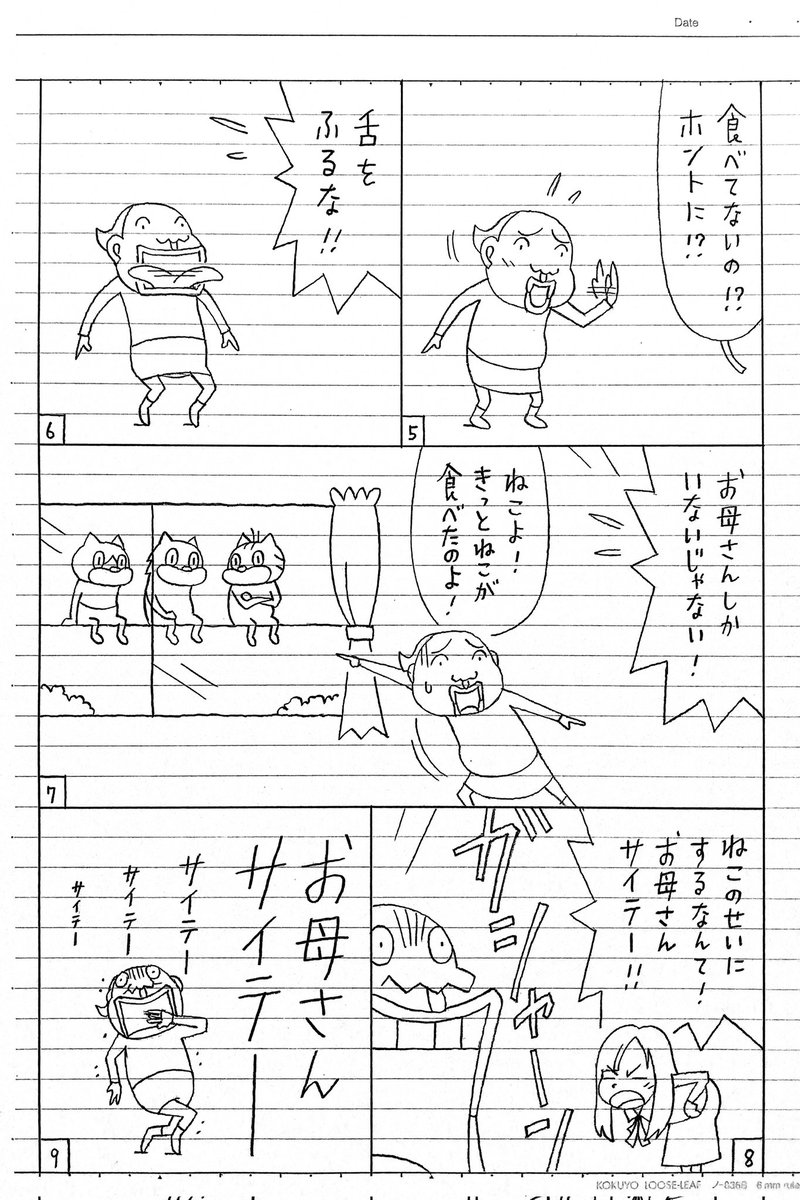 Date
食べてないの!?
ホントに!?
5
舌を
ふるな!!
6
お母さんしか
いないじゃない!
ねこよ!
きっとねこが
食べたのよ!
7
ねこのせいに
するなんて!
お母さん
サイテー!!
ガシャーン
8
お母さん
サイテー
サイテー
サイテー
サイテー
9
KOKUYO LOOSE-LEAF ノ-836B 6 mm rule